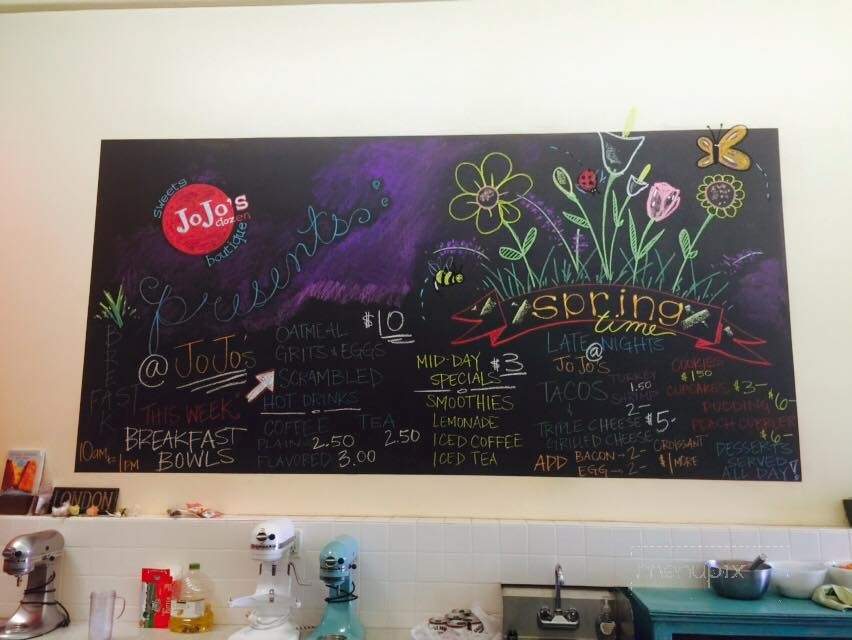 sweets
JoJo's
dozen
boutique
Presents
@ JoJo's
THIS WEEK
BREAKFAST
BOWLS
10am - 1pm
OATMEAL $10
GRITS & EGGS
SCRAMBLED
HOT DRINKS
COFFEE TEA
PLAIN - 2.50 2.50
FLAVORED 3.00
MID-DAY $3
SPECIALS
SMOOTHIES
LEMONADE
ICED COFFEE
ICED TEA
spring
time
LATE NIGHTS
@
JOJO'S
TACOS
TURKEY
1.50
SHRIMP
2-
&
TRIPLE CHEESE $5-
GRILLED CHEESE
ADD BACON - 2-
EGG - 2-
CROISSANT
$1 MORE
COOKIES
$1.50
CUPCAKES $3-
PUDDING $6-
PEACH COBBLER
$6-
DESSERTS
SERVED
ALL DAY!
LONDON
menupix